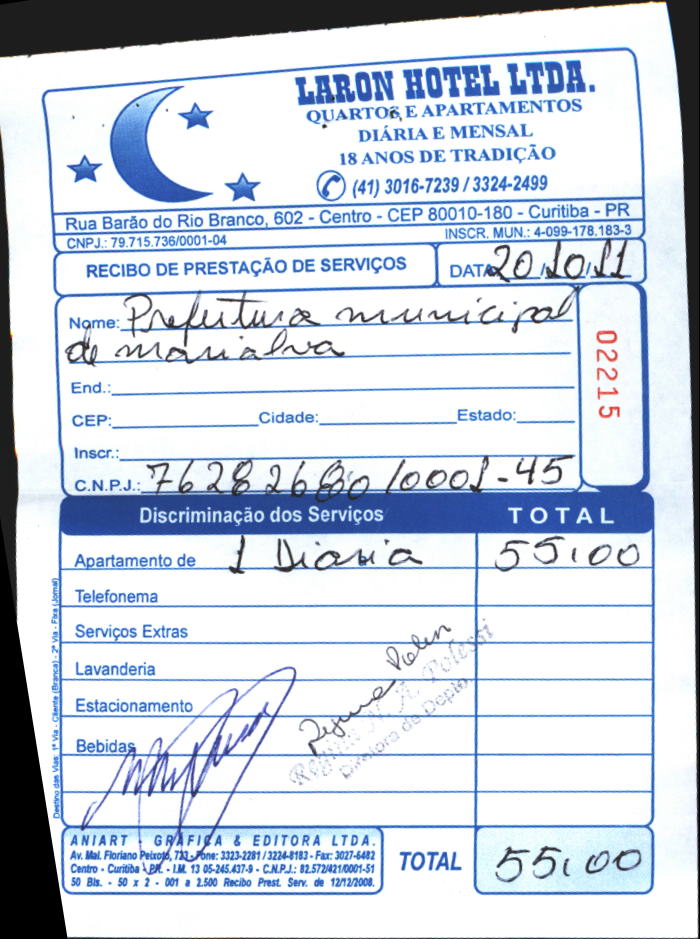 LARON HOTEL LTDA.
QUARTOS E APARTAMENTOS
DIÁRIA E MENSAL
18 ANOS DE TRADIÇÃO
(41) 3016-7239 / 3324-2499
Rua Barão do Rio Branco, 602 - Centro - CEP 80010-180 - Curitiba - PR
CNPJ.: 79.715.736/0001-04 INSCR. MUN.: 4-099-178.183-3
RECIBO DE PRESTAÇÃO DE SERVIÇOS DATA 20/10/11
Nome: Prefeitura municipal
de marialva
02215
End.:
CEP: Cidade: Estado:
Inscr.:
C.N.P.J.: 76282680/0001-45
Discriminação dos Serviços TOTAL
Apartamento de 1 Diaria 55,00
Telefonema
Serviços Extras
Lavanderia
Estacionamento
Bebidas
Regina N. A. Polessi
Diretora de Depto.
Destino das Vias: 1ª Via - Cliente (Branca) - 2ª Via - Fixa (Jornal)
ANIART GRÁFICA & EDITORA LTDA.
Av. Mal. Floriano Peixoto, 733 - Fone: 3323-2281 / 3224-8183 - Fax: 3027-6482
Centro - Curitiba - PR. - I.M. 13 05-245.437-9 - C.N.P.J.: 82.572/421/0001-51
50 Bls. - 50 x 2 - 001 a 2.500 Recibo Prest. Serv. de 12/12/2008.
TOTAL 55,00